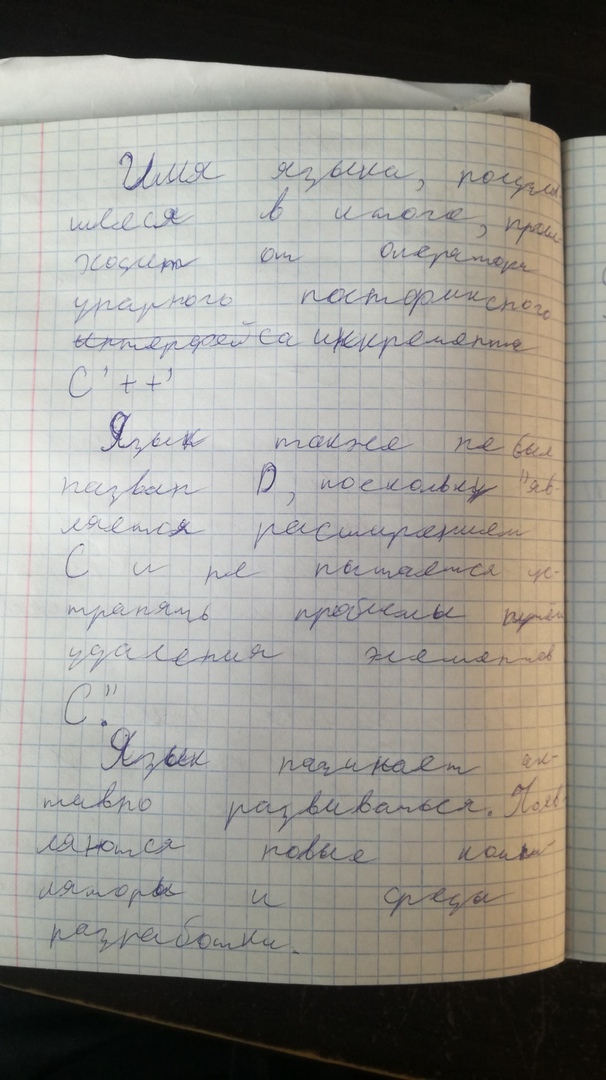 Имя языка, получив-
шееся в итоге, проис-
ходит от оператора
унарного постфиксного
интерфейса инкремента
C '++'
Язык также не был
назван D, поскольку "яв-
ляется расширением
C и не пытается ус-
транять проблемы путем
удаления элементов
C."
Язык начинает ак-
тивно развиваться. Появ-
ляются новые компи-
ляторы и среды
разработки.